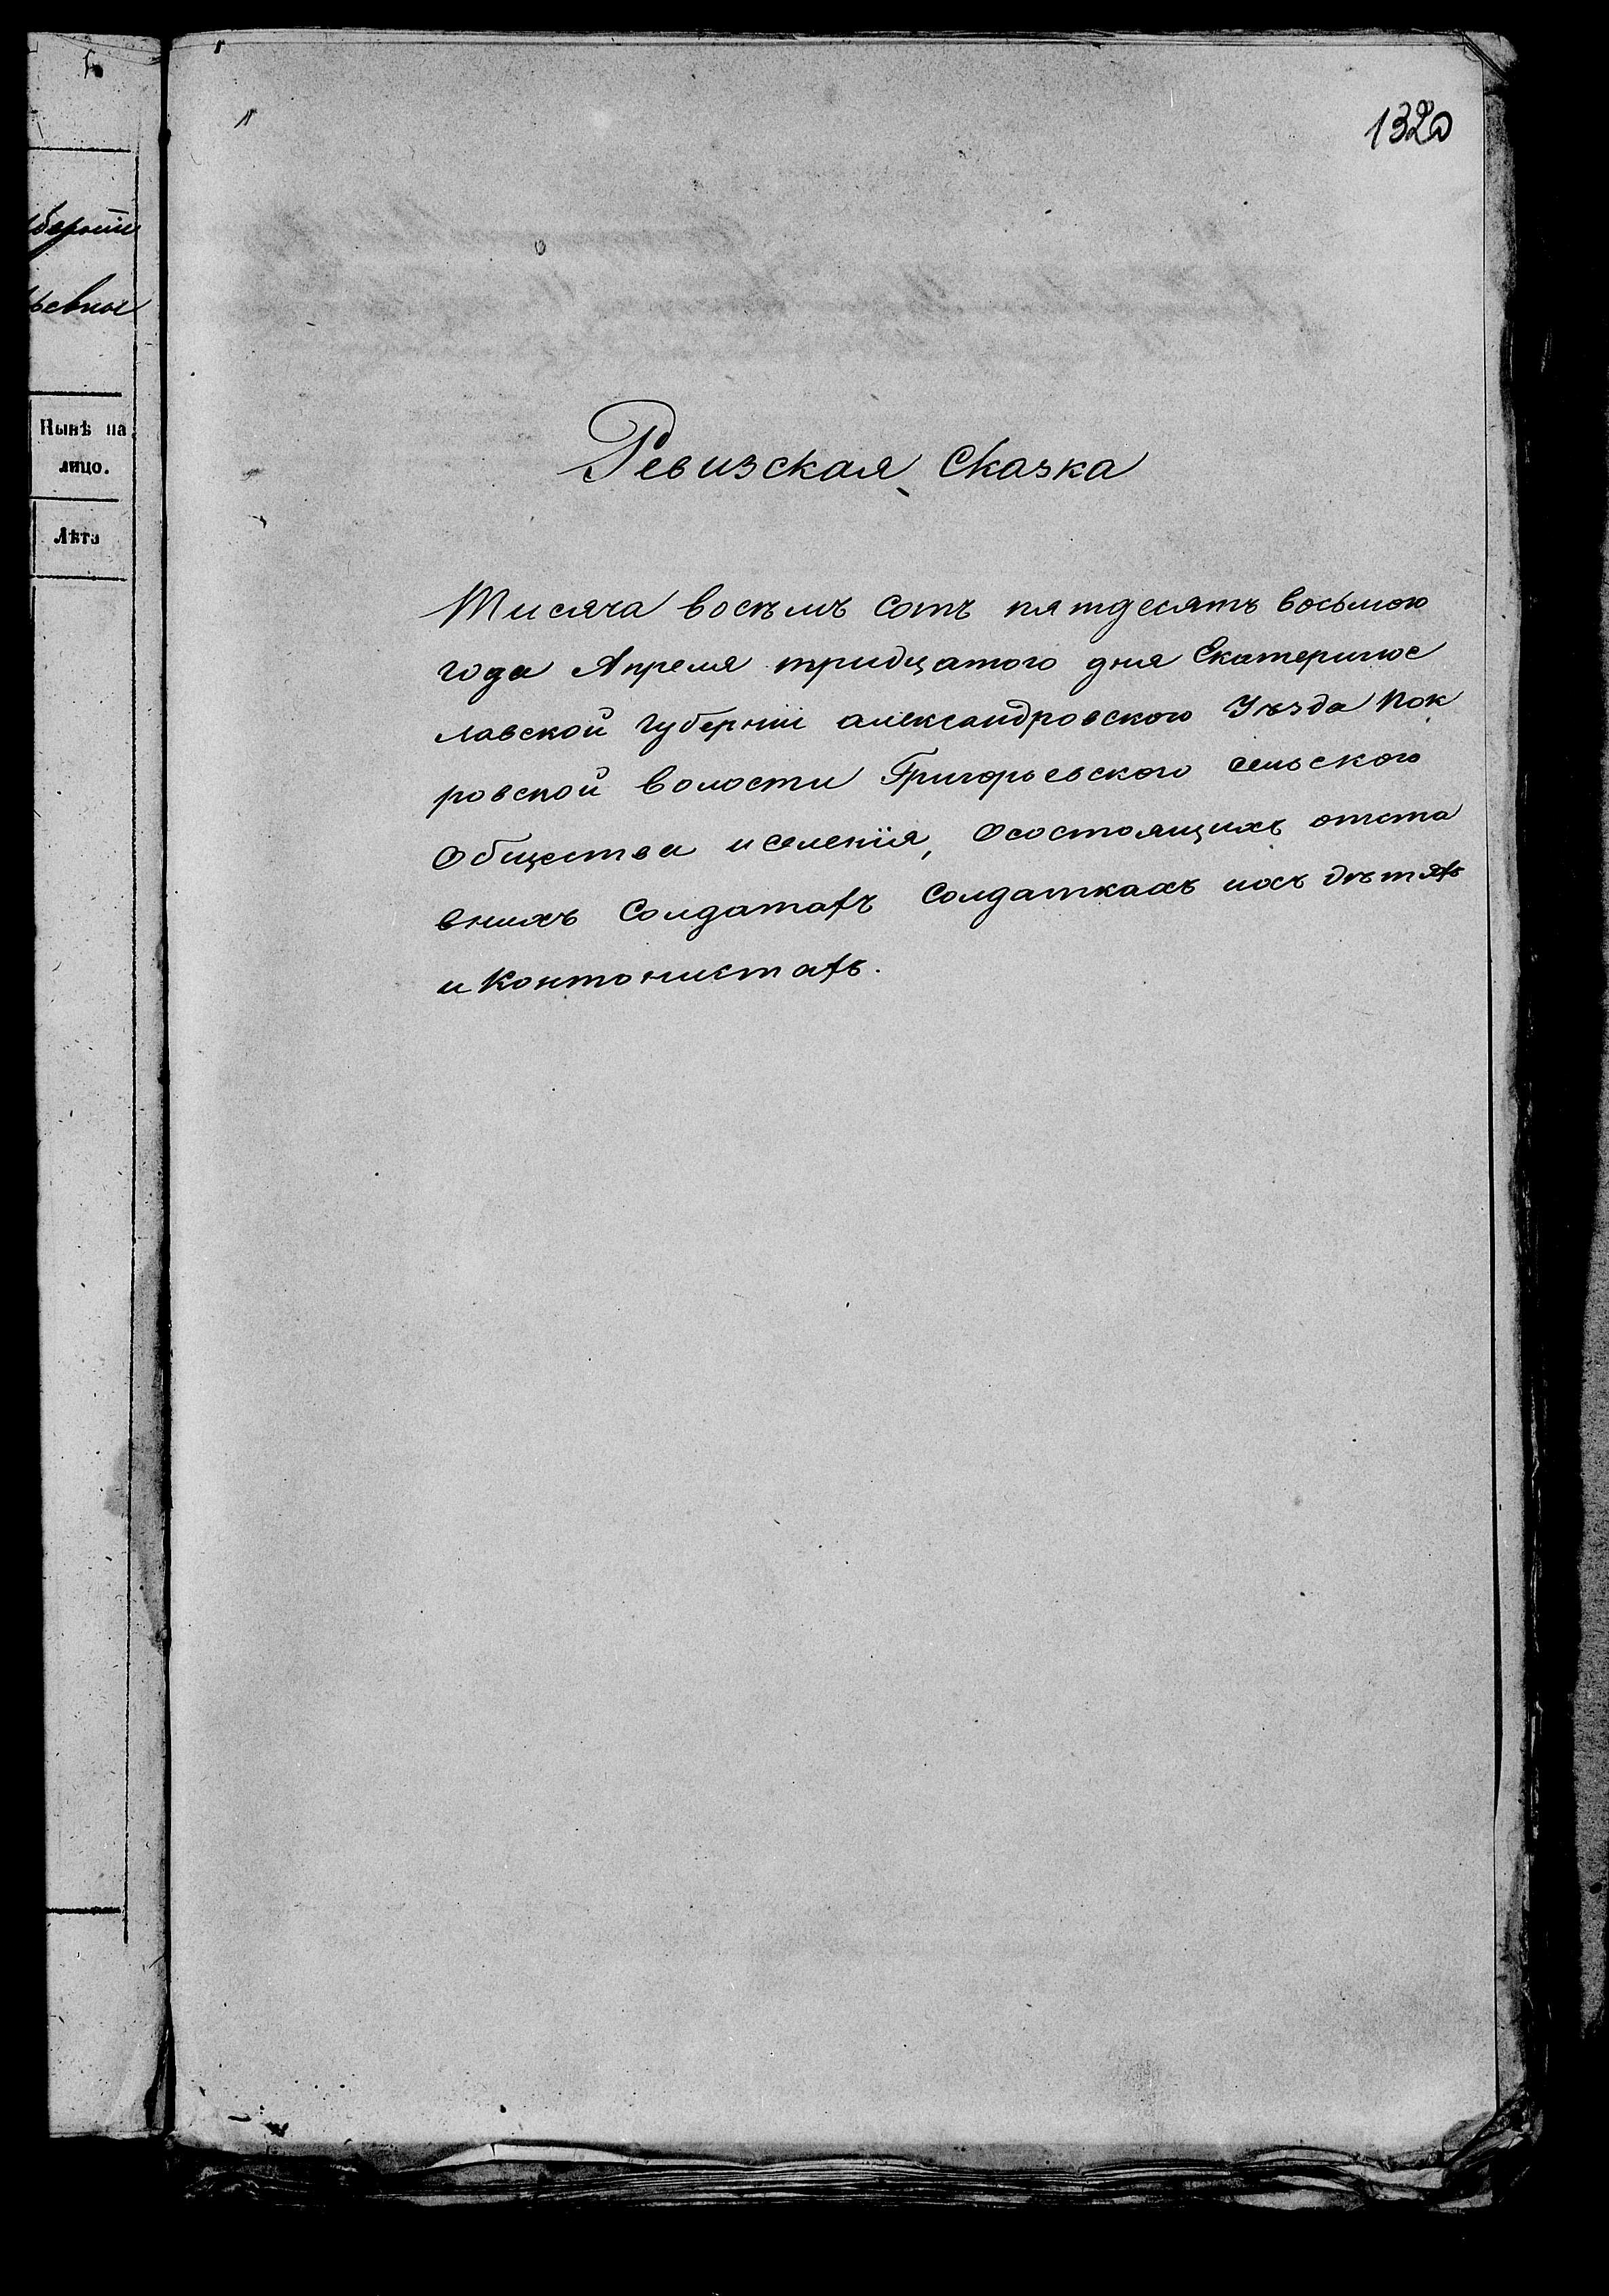 1320
Ревизская Сказка
Тисяча восѣмъ сотъ пятдесятъ восьмого
года Апреля тридцатого дня Екатеринос
лавской губерніи александровского Уѣзда Пок
ровской волости Григорьевского сельского
Общества иселенія, Осостоящихъ отста
внихъ Солдатахъ Солдаткахъ ихъ дѣтяхъ
и Контонистахъ.
Нынѣ на
лицо.
Лѣта